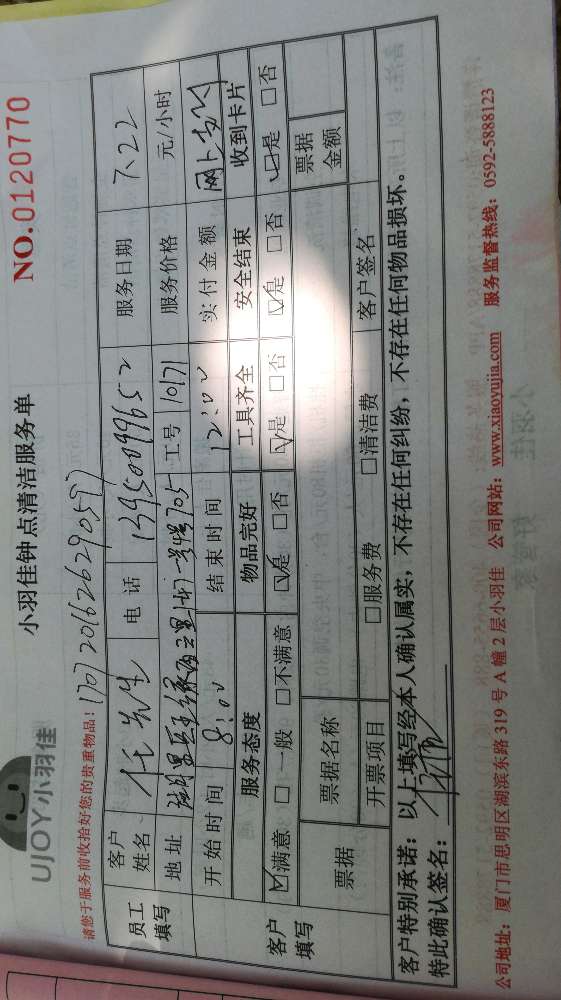 UJOY小羽佳
小羽佳钟点清洁服务单
NO.0120770
请您于服务前收拾好您的贵重物品！170720162629057
员工填写
客户姓名 任先生 电话 13950099652 服务日期 7.22
地址 705 工号 10171 服务价格 元/小时
开始时间 8:00 结束时间 12:00 实付金额 网上支付
客户填写
服务态度 物品完好 工具齐全 安全结束 收到卡片
☑满意 □一般 □不满意 ☑是 □否 ☑是 □否 ☑是 □否 ☑是 □否
票据 票据名称 票据金额
开票项目 □服务费 □清洁费 客户签名
客户特别承诺：以上填写经本人确认属实，不存在任何纠纷，不存在任何物品损坏.
特此确认签名：
公司地址：厦门市思明区湖滨东路319号A幢2层小羽佳 公司网站：www.xiaoyujia.com 服务监督热线：0592-5888123